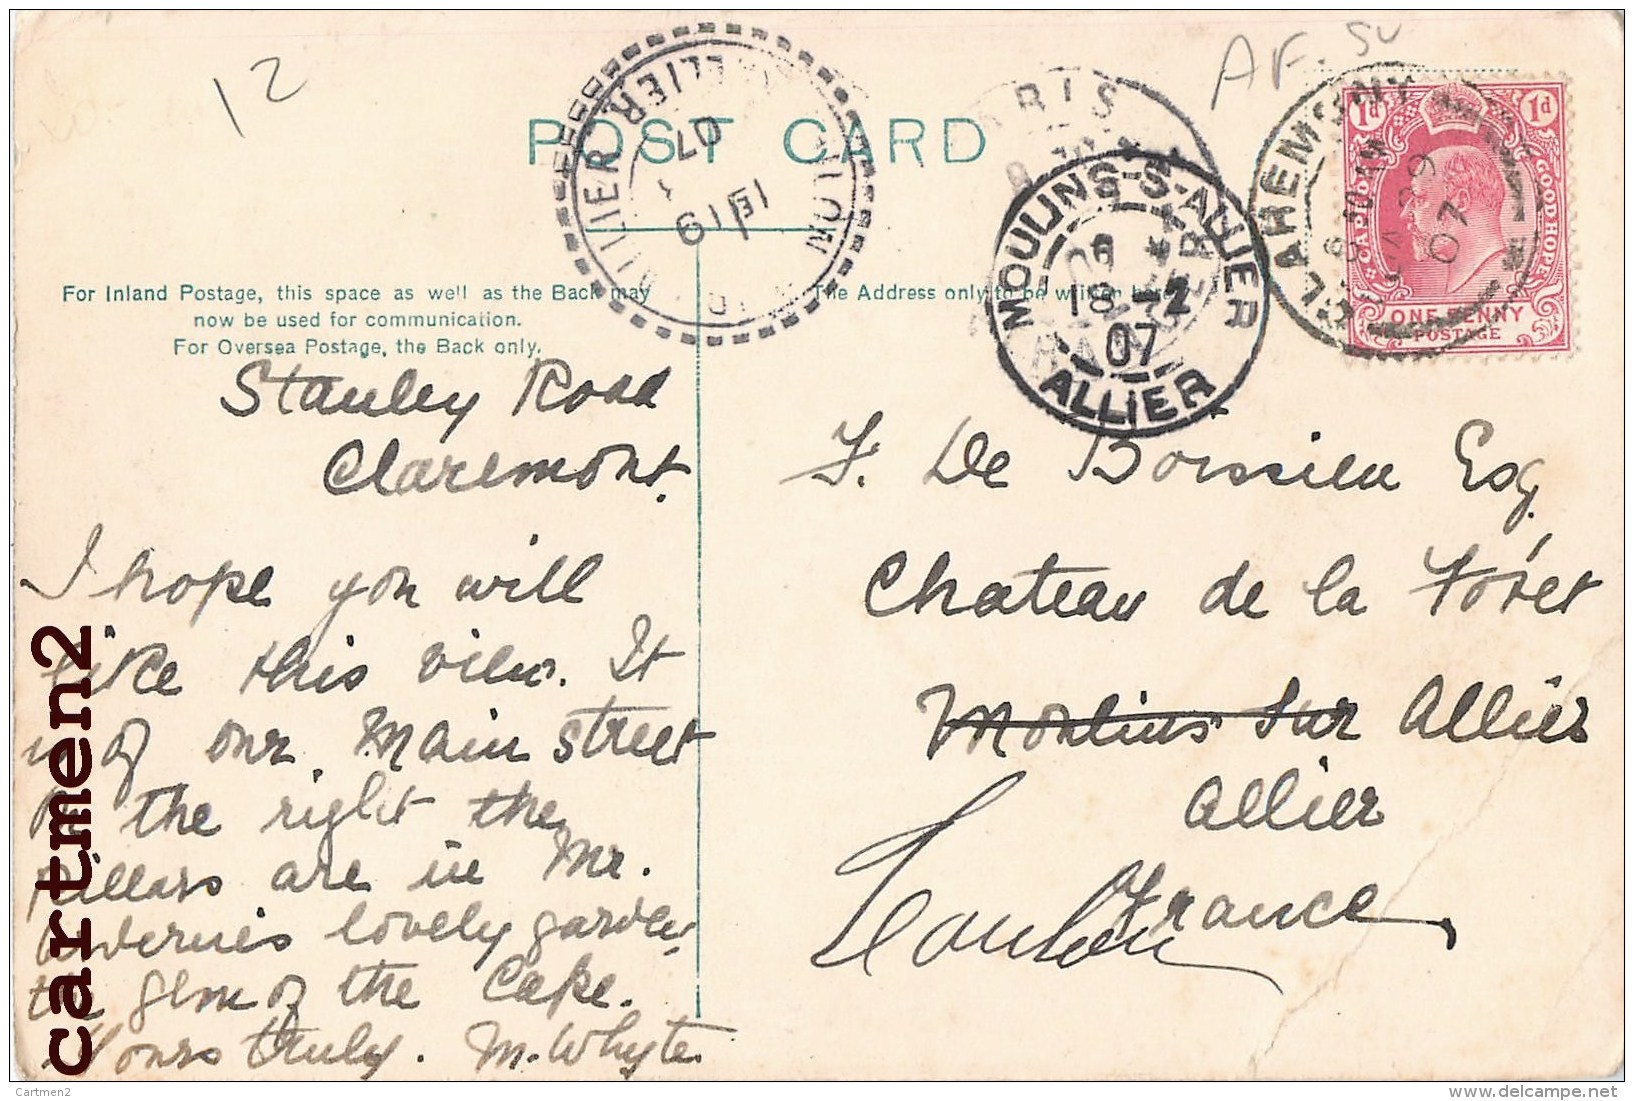 12
AF. SU
POST CARD
For Inland Postage, this space as well as the Back may
now be used for communication.
For Oversea Postage, the Back only.
The Address only to be written here
ALLIER
19
07
ARIS
MOULINS-S-ALLIER
18 -2
07
ALLIER
CLAREMONT
07
1d 1d
CAPE OF GOOD HOPE
ONE PENNY
POSTAGE
Stanley Road
Claremont.
I hope you will
like this view. It
is of our Main street
on the right the
Pillars are in Mr.
lovely garden
the gem of the Cape.
Yours truly. M. Whyte
F. De Boissieu Esq.
Chateau de la Forêt
Moulins sur Allier
Allier
France
cartmen2
Cartmen2
www.delcampe.net